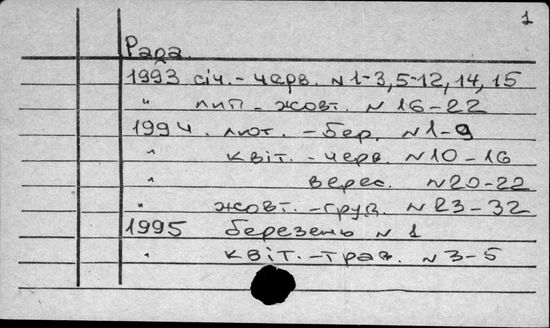 1
Рада.
1993 січ. - черв. N 1-3, 5-12, 14, 15
" лип - жовт. N 16-22
1994. лют. - бер. N 1-9
" квіт. - черв. N 10-16
" верес. N 20-22
" жовт. - груд. N 23-32
1995 березень N 1
" квіт. - трав. N 3-5